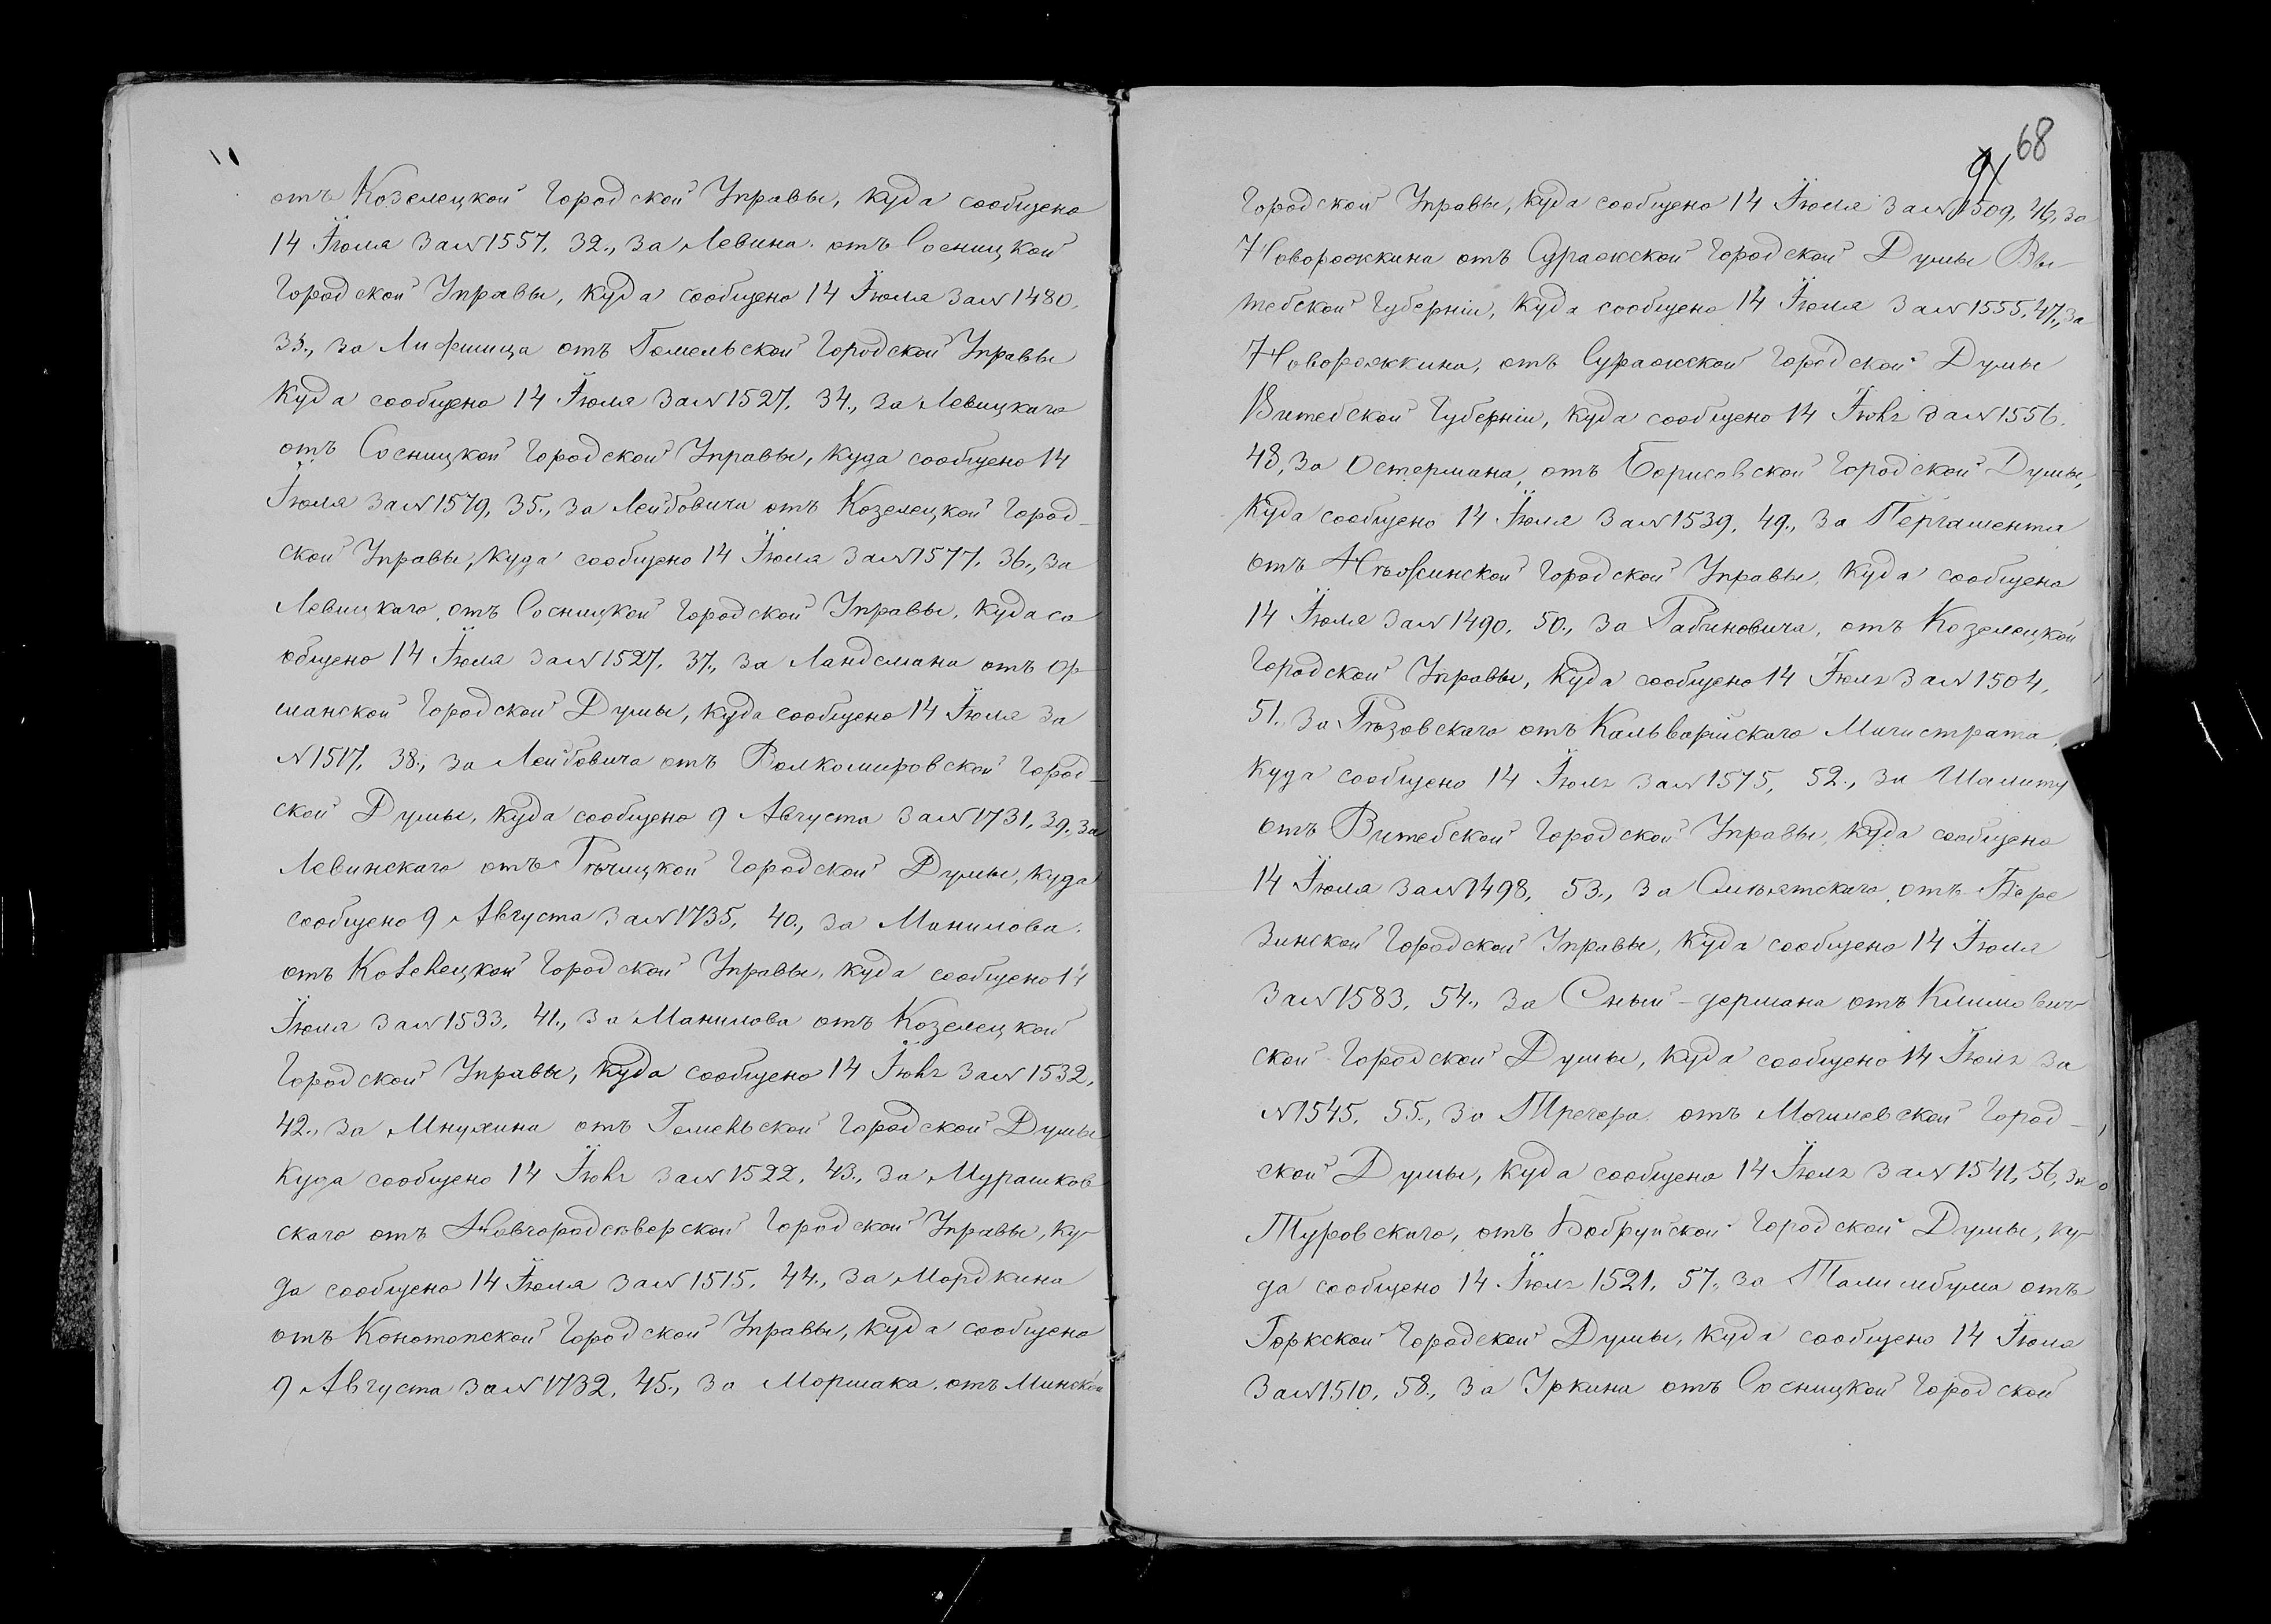 отъ Козелецкой Городской Управы, куда сообщено
14 Іюля за № 1557. 32., за Левина отъ Сосницкой
Городской Управы, куда сообщено 14 Іюля за № 1480.
33., за Лифшица отъ Гомельской Городской Управы
куда сообщено 14 Іюля за № 1527. 34., за Левицкаго
отъ Сосницкой Городской Управы, куда сообщено 14
Іюля за № 1579, 35., за Лейбовича отъ Козелецкой Город-
ской Управы, куда сообщено 14 Іюля за № 1577. 36., за
Левицкаго, отъ Сосницкой Городской Управы, куда со
общено 14 Іюля за № 1527. 37., за Ландсмана отъ Ор-
шанской Городской Думы, куда сообщено 14 Іюля за
№ 1517, 38., за Лейбовича отъ Вилкомировской Город-
ской Думы, куда сообщено 9 Августа за № 1731, 39, за
Левинскаго отъ Рѣчицкой Городской Думы, куда
сообщено 9 Августа за № 1735, 40., за Манилова
отъ Козелецкой Городской Управы, куда сообщено 14
Іюля за № 1533, 41., за Манилова отъ Козелецкой
Городской Управы, куда сообщено 14 Іюля за № 1532,
42., за Мнухина отъ Гомельской Городской Думы
куда сообщено 14 Іюля за № 1522, 43., за Мурашков
скаго отъ Новгородсѣверской Городской Управы, ку-
да сообщено 14 Іюля за № 1515, 44., за Мордкина
отъ Конотопской Городской Управы, куда сообщено
9 Августа за № 1732, 45., за Моршака отъ Минской
68
Городской Управы, куда сообщено 14 Іюля за № 1509, 46, за
Новорожкина отъ Суражской Городской Думы Ви-
тебской Губерніи, куда сообщено 14 Іюля за № 1555, 47., за
Новорожкина, отъ Суражской Городской Думы
Витебской Губерніи, куда сообщено 14 Іюля за № 1556.
48, за Остермана, отъ Борисовской Городской Думы,
куда сообщено 14 Іюля за № 1539, 49., за Пергамента
отъ Нѣжинской Городской Управы, куда сообщено
14 Іюля за № 1490, 50., за Рабиновича, отъ Козелецкой
Городской Управы, куда сообщено 14 Іюля за № 1504,
51. за Рѣзовскаго отъ Кальварійскаго Магистрата,
куда сообщено 14 Іюля за № 1575, 52., за Шамиту
отъ Витебской Городской Управы, куда сообщено
14 Іюля за № 1498, 53., за Смѣлятскаго, отъ Бере
зинской Городской Управы, куда сообщено 14 Іюля
за № 1583, 54., за Сный-дермана отъ Климович-
ской Городской Думы, куда сообщено 14 Іюля за
№ 1545. 55., за Тречера отъ Могилевской Город-
ской Думы, куда сообщено 14 Іюля за № 1541, 56, за
Туровскаго, отъ Бобруйской Городской Думы, ку-
да сообщено 14 Іюля 1521, 57., за отъ
Горкской Городской Думы, куда сообщено 14 Іюля
за № 1510, 58., за Уркина отъ Сосницкой Городской